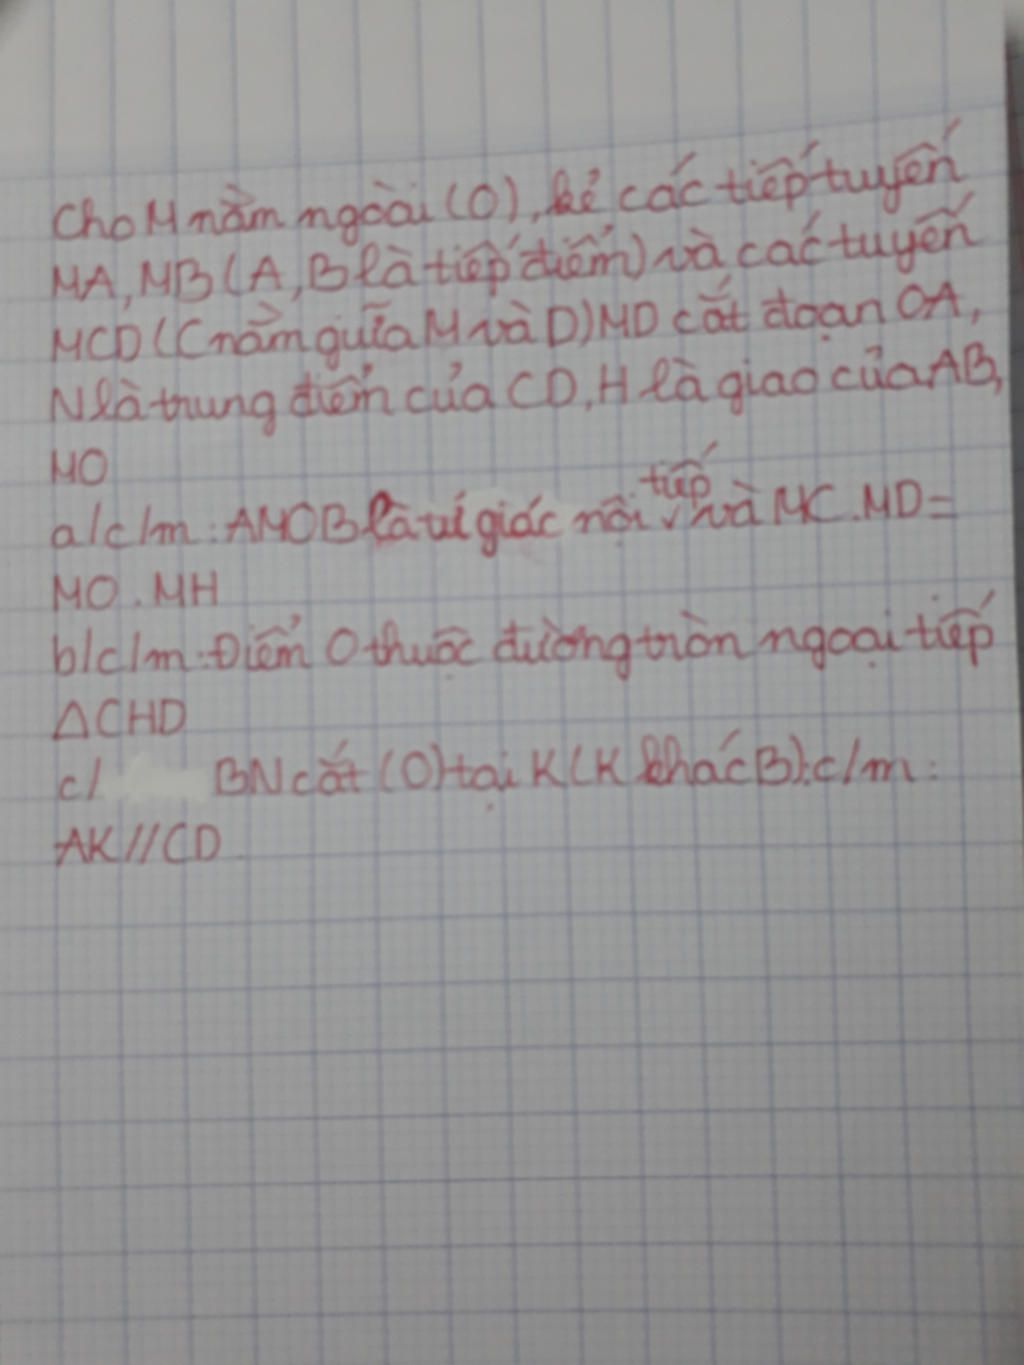 Cho M nằm ngoài (O), kẻ các tiếp tuyến
MA, MB (A, B là tiếp điểm) và các tuyến
MCD (C nằm giữa M và D) MD cắt đoạn OA,
N là trung điểm của CD, H là giao của AB,
MO
a/c/m: AMOB là tứ giác nội tiếp và MC.MD=
MO.MH
b/c/m: Điểm O thuộc đường tròn ngoại tiếp
△CHD
c/ BN cắt (O) tại K (K khác B). c/m:
AK//CD